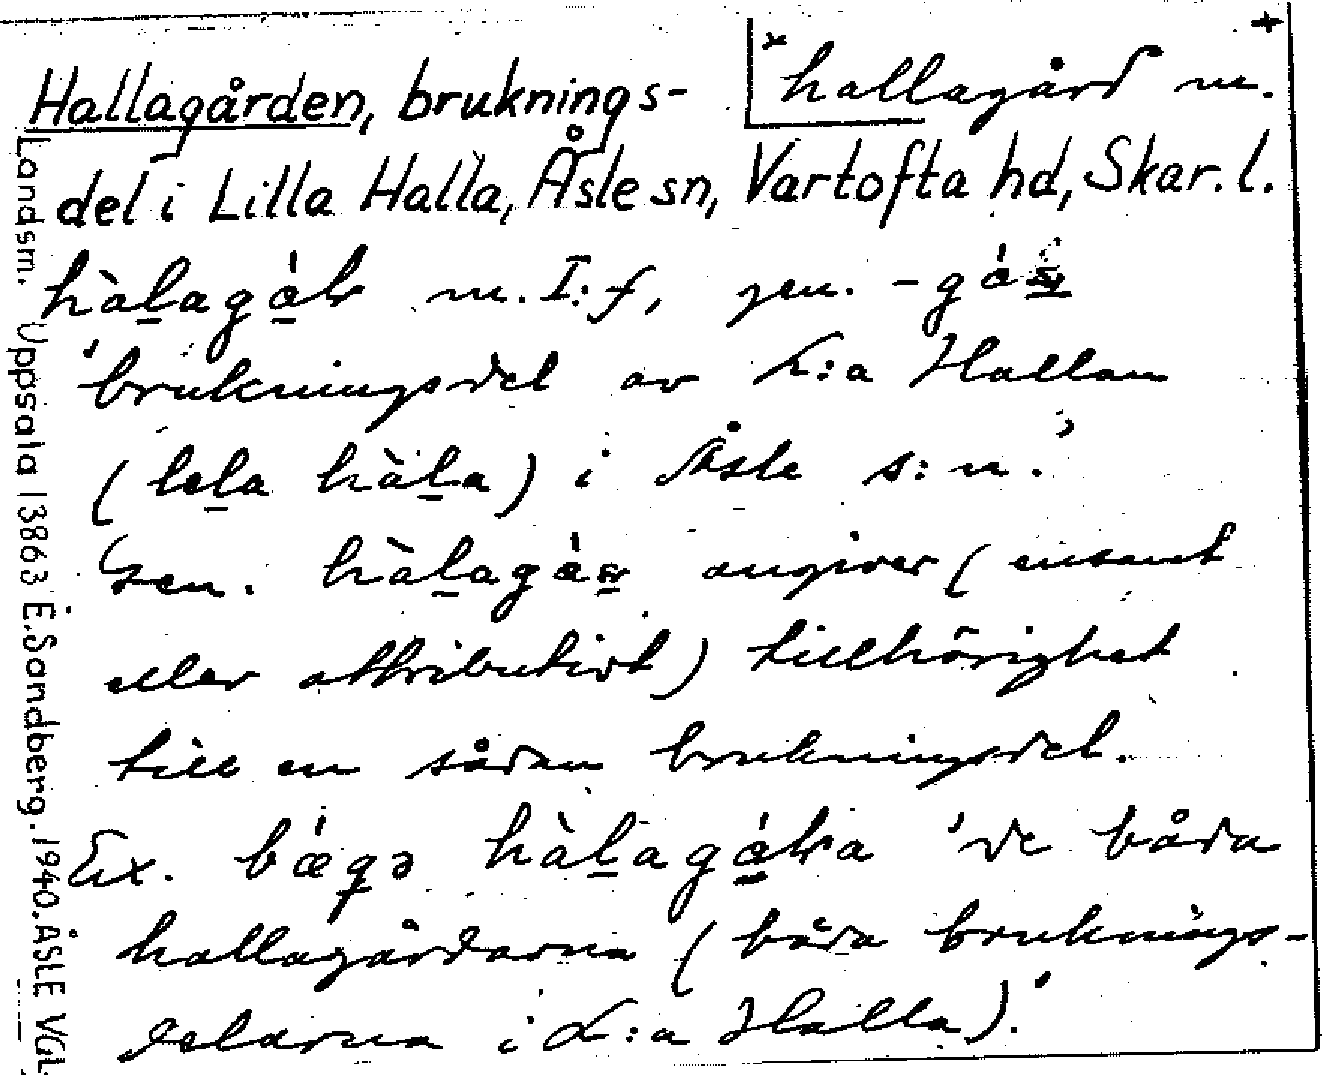 Hallagården, bruknings-
hallagård m.
del i Lilla Halla, Åsle sn, Vartofta hd, Skar. l.
m. I:f, gen.
'brukningsdel av L:a Hallan
(lela hàla) i Åsle s:n.'
Gen. angiver (ensamt
eller attributivt) tillhörighet
till en sådan brukningsdel.
Ex. 'de båda
hallagårdarna (båda bruknings-
delarna i L:a Halla).'
Landsm. Uppsala 13863 E. Sandberg. 1940. ÅSLE VGL.